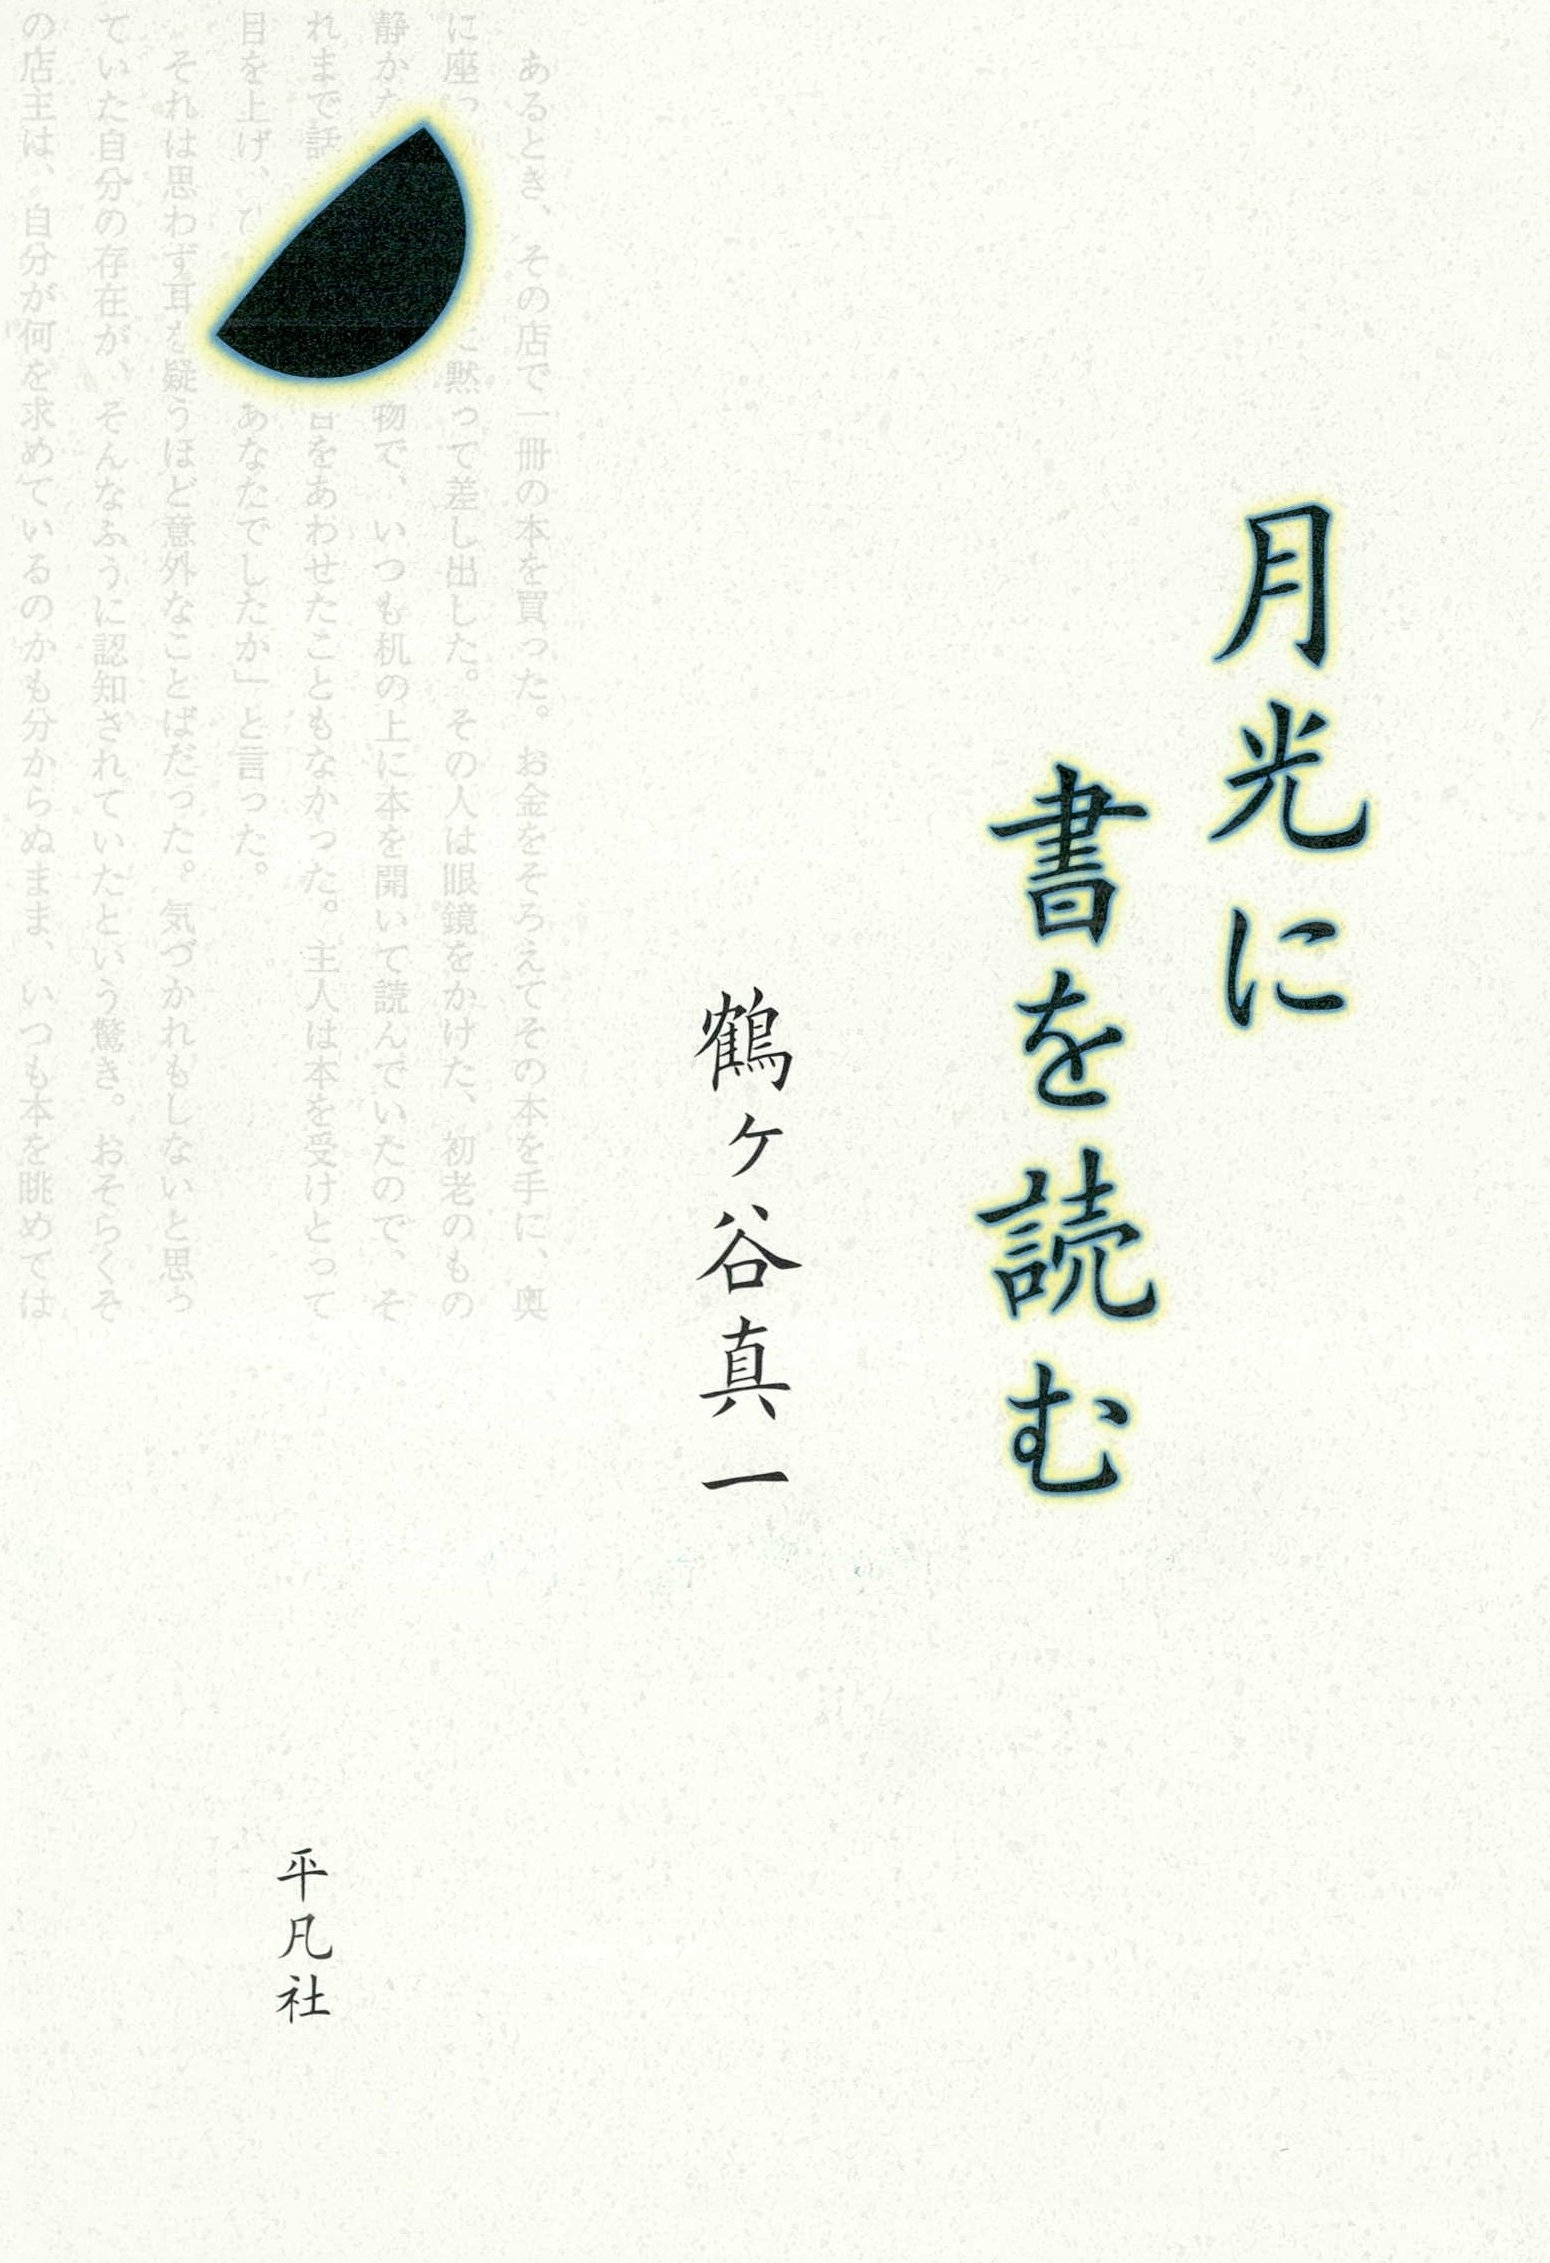 月光に
書を読む
鶴ヶ谷真一
あるとき、その店で一冊の本を買った。お金をそろえてその本を手に、奥
に座っ に黙って差し出した。その人は眼鏡をかけた、初老のもの
静かな 物で、いつも机の上に本を開いて読んでいたので、そ
れまで話 をあわせたこともなかった。主人は本を受けとって
目を上げ、 あなたでしたか」と言った。
それは思わず耳を疑うほど意外なことばだった。気づかれもしないと思っ
ていた自分の存在が、そんなふうに認知されていたという驚き。おそらくそ
の店主は、自分が何を求めているのかも分からぬまま、いつも本を眺めては
平凡社